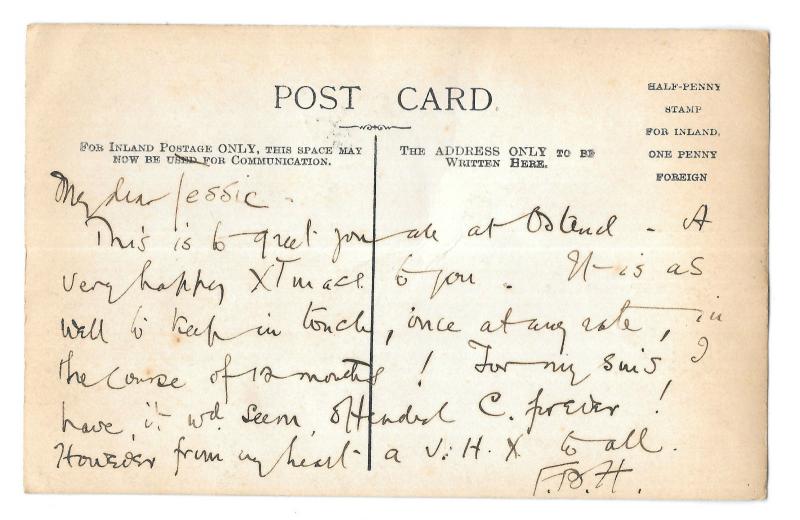 POST CARD.
FOR INLAND POSTAGE ONLY, THIS SPACE MAY
NOW BE USED FOR COMMUNICATION.
THE ADDRESS ONLY TO BE
WRITTEN HERE.
HALF-PENNY
STAMP
FOR INLAND,
ONE PENNY
FOREIGN
My dear Jessie -
This is to greet you all at Ostend - A
very happy XTmas to you. It is as
well to keep in touch, once at any rate, in
the course of 12 months! For my sins, I
have, it wd. seem, offended C. forever!
However from my heart a V. H. X to all.
F.B.H.